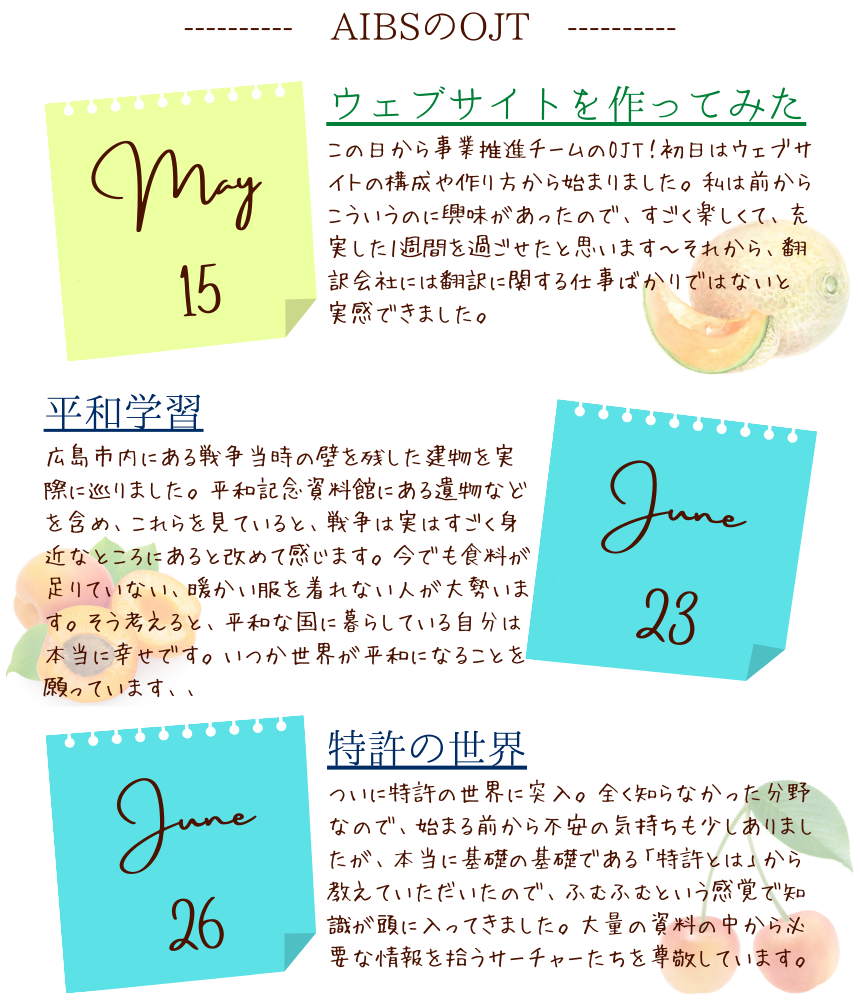 ---------- AIBSのOJT ----------
May
15
ウェブサイトを作ってみた
この日から事業推進チームのOJT!初日はウェブサ
イトの構成や作り方から始まりました。私は前から
こういうのに興味があったので、すごく楽しくて、充
実した1週間を過ごせたと思います～それから、翻
訳会社には翻訳に関する仕事ばかりではないと
実感できました。
平和学習
広島市内にある戦争当時の壁を残した建物を実
際に巡りました。平和記念資料館にある遺物など
を含め、これらを見ていると、戦争は実はすごく身
近なところにあると改めて感じます。今でも食料が
足りていない、暖かい服を着れない人が大勢いま
す。そう考えると、平和な国に暮らしている自分は
本当に幸せです。いつか世界が平和になることを
願っています、、
June
23
June
26
特許の世界
ついに特許の世界に突入。全く知らなかった分野
なので、始まる前から不安の気持ちも少しありまし
たが、本当に基礎の基礎である「特許とは」から
教えていただいたので、ふむふむという感覚で知
識が頭に入ってきました。大量の資料の中から必
要な情報を拾うサーチャーたちを尊敬しています。